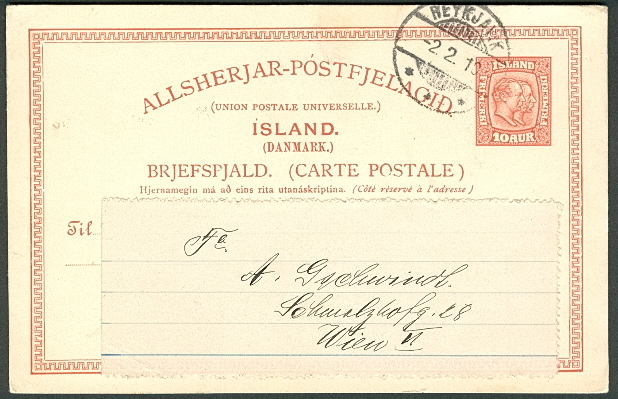 REYKJAVIK
-2. 2. 1
ALLSHERJAR-PÓSTFJELAGIÐ.
(UNION POSTALE UNIVERSELLE.)
ÍSLAND.
(DANMARK.)
BRJEFSPJALD. (CARTE POSTALE)
Hjernamegin má að eins rita utanáskriptina. (Côté réservé à l'adresse)
ÍSLAND
10 AUR.
Til
Fa
A. Gschwindl.
Schmalzhofg. 28
Wien VI